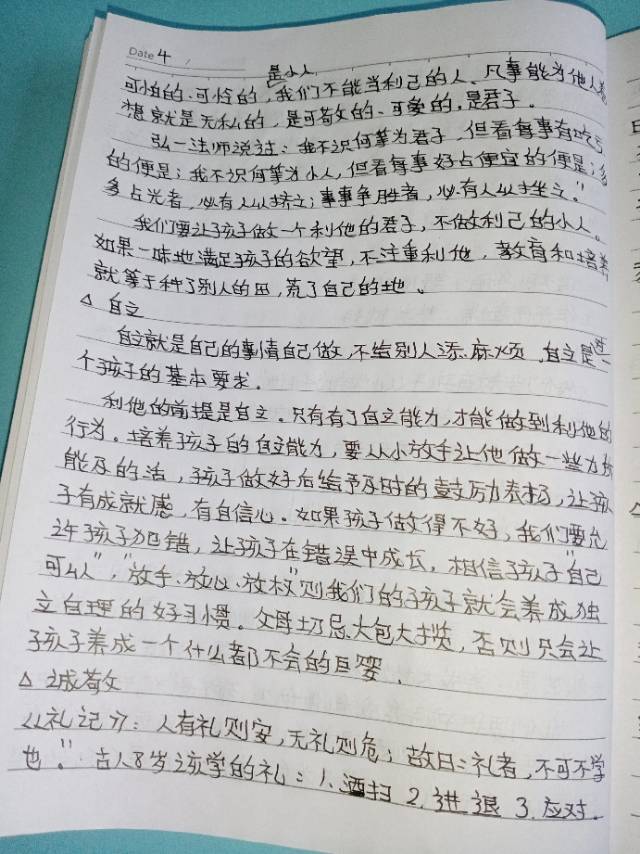 Date 4 /
是小人
可怕的、可怜的,我们不能当利己的人、凡事能为他人着
想就是无私的,是可敬的、可爱的,是君子。
弘一法师说过:我不识何等为君子,但看每事有吃亏
的便是;我不识何等为小人,但看每事好占便宜的便是;
多占光者,必有人以挤之;事事争胜者,必有人以挫之。"
我们要让孩子做一个利他的君子,不做利己的小人。
如果一味地满足孩子的欲望,不注重利他,教育和培养
就等于种了别人的田,荒了自己的地。
△ 自立
自立就是自己的事情自己做,不给别人添麻烦,自立是一
个孩子的基本要求.
利他的前提是自立。只有有了自立能力,才能做到利他的
行为。培养孩子的自立能力,要从小放手让他做一些力所
能及的活,孩子做好后给予及时的鼓励表扬,让孩
子有成就感,有自信心。如果孩子做得不好,我们要允
许孩子犯错,让孩子在错误中成长,相信孩子"自己
可以","放手、放心、放权"则我们的孩子就会养成独
立自理的好习惯。父母切忌大包大揽,否则只会让
孩子养成一个什么都不会的巨婴.
△ 诚敬
《礼记》:人有礼则安,无礼则危;故曰:礼者,不可不学
也。"古人8岁该学的礼:1.洒扫 2.进退 3.应对.